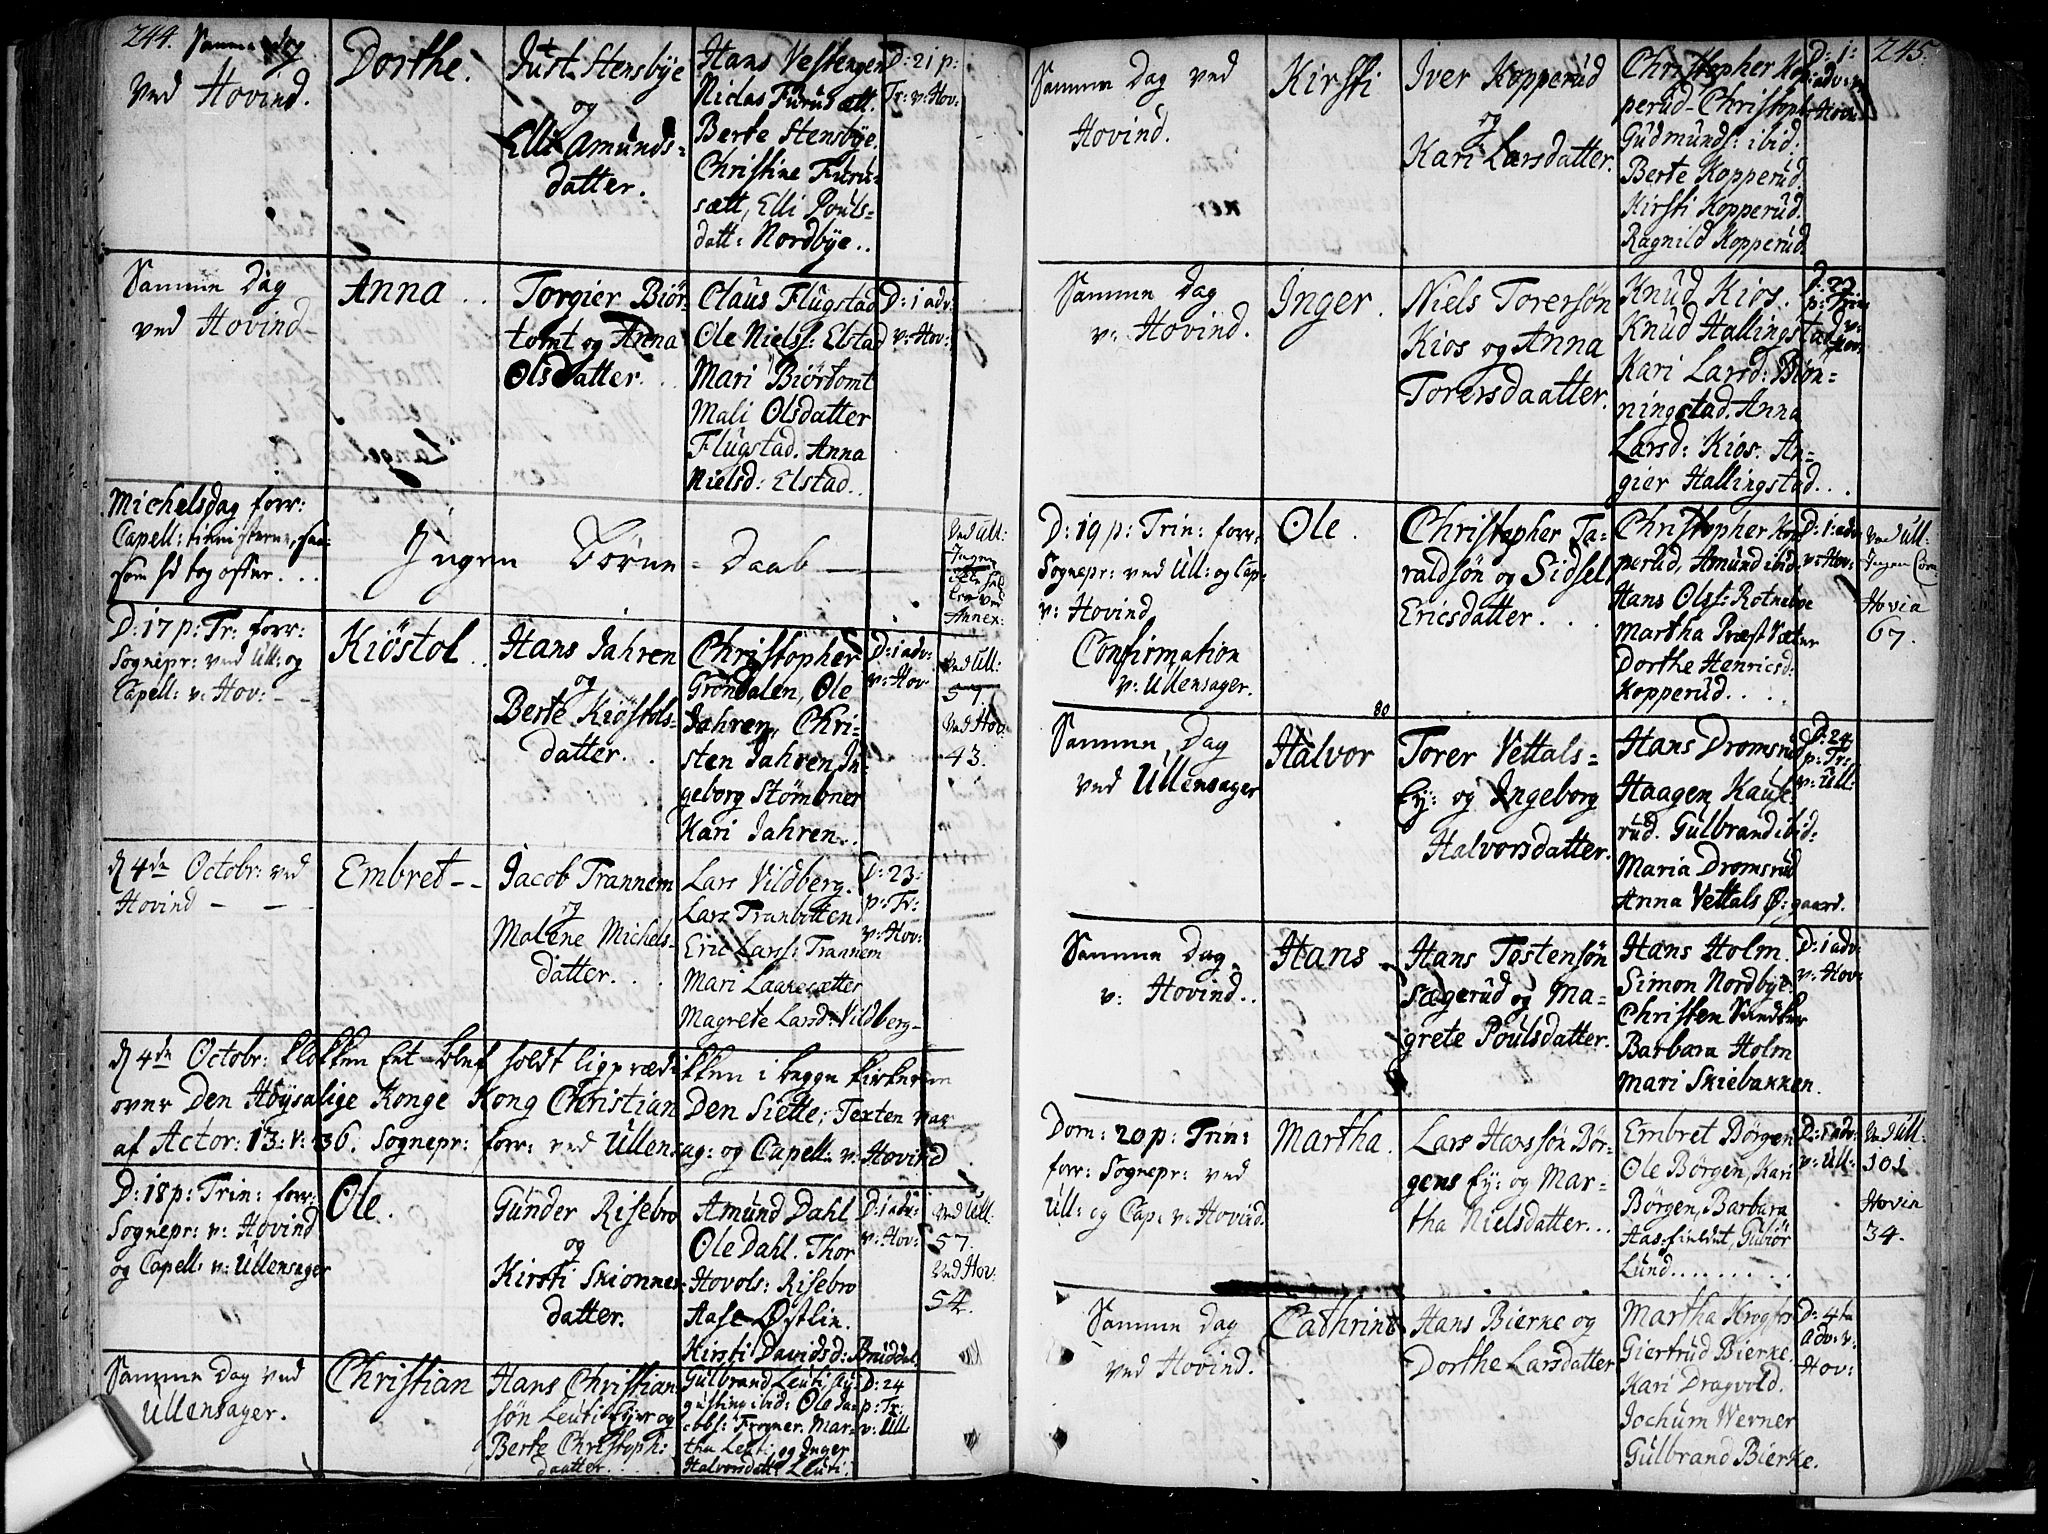 244. Samme dag
ved Hovind.
Dorthe.
Just Stensbye
og
Elli Amunds-
datter.
Hans Vestengen
Niclas Furusætt.
Berte Stensbye.
Christine Furu-
sætt, Elli Pouls-
datt: Nordbye..
D: 21 p:
Tr: v: Hov:
Samme Dag
ved Hovind
Anna
Torgier Biör-
tomt og Anna
Olsdatter.
Claus Flugstad
Ole Niels: Elstad
Mari Biörtomt
Mali Olsdatter
Flugstad. Anna
Nielsd: Elstad..
D: 1 adv:
v: Hov:
Michelsdag forr:
Capell:
som
Ingen Börne-Daab
Ved Ull:
Ingen
Annex:
D: 17 p: Tr: forr:
Sognepr: ved Ull: og
Capell: v: Hov:
Kiöstol
Hans Jahren
og
Berte Kiöstols-
datter.
Christopher
Gröndalen, Ole
Jahren, Chri-
sten Jahren, In-
geborg Stömbner
Kari Jahren..
D: 1 adv:
v: Hov
Ved Ull:
57.
Ved Hov:
43.
d 4de Octobr: ved
Hovind
Embret
Jacob Trannem
og
Malene Michels-
datter.
Lars Vildberg.
Lars Tranbotten
Eric Larss: Trannem
Mari Laakesætter
Magrete Larsd: Vildberg
D: 23
p: Tr:
v: Hov:
d 4de Octobr: klokken Eet blef holdt ligprædikken i begge kirkerne
over Den Höysalige Konge Kong Christian Den Siette; Texten var
af Actor: 13: v: 36. Sognepr: forr: ved Ullensag: og Capell: v: Hovind
D: 18 p: Trin: forr:
Sognepr: v: Hovind
og Capell: v: Ullensager
Ole.
Gunder Risebro
og
Kirsti Skionnes-
datter.
Amund Dahl
Ole Dahl. Thor
Hovols: Risebro
Aase Østlin.
Kirsti Davidsd: Bruddal
D: 1 adv:
v: Hov:
Ved Ull.
57.
Ved Hov:
54.
Samme Dag ved
Ullensager.
Christian
Hans Christian-
sön Leuti Eyer og
Berte Christoph:
daatter.
Gulbrand Leuti, Au-
gusting ibid: Ole Ja-
cobs: Frogner. Mar-
tha Leuti og Inger
Halvorsdatt: Leuti.
D: 24
p: Tr:
v: Ull
245.
Samme Dag ved
Hovind.
Kirsti
Iver Kopperud
og
Kari Larsdatter.
Christopher Kop-
perud- Christoph:
Gudmunds: ibid.
Berte Kopperud
Kirsti Kopperud.
Ragnild Kopperud
D: 1:
adv: v:
Hov:
Samme Dag
v: Hovind.
Inger.
Niels Torersön
Kios og Anna
Torersdaatter.
Knud Kios.
Knud Hallingstad
Kari Larsd: Biön-
ningstad. Anna
Larsd: Kios. An-
gier Hallingstad...
D: 22
p: Trin:
v:
Hov:
D: 19 p: Trin: forr:
Sognepr: ved Ull: og Cap:
v: Hovind
Confirmation
v: Ullensager.
Ole.
Christopher Ta-
raldsön og Sidsel
Ericsdatter...
Christopher Kop-
perud, Amund ibid:
Hans Olss: Rotneboe
Martha Præst Sæter
Dorthe Henricsd:
Kopperud...
D: 1 adv:
v: Hov:
Ved Ull:
Ingen Com:
Hovin
67.
Samme Dag
ved Ullensager
80
Halvor
Torer Vettals-
Ey: og Ingeborg
Halvorsdatter.
Hans Dromsrud
Haagen Kause-
rud. Gulbrand ibid:
Maria Dromsrud
Anna Vettals Ø: gaard.
D: 24
p: Tr:
v: Ull:
Samme Dag
v: Hovind..
Hans
Hans Tostensön
Sægerud og Ma-
grete Poulsdatter.
Hans Holm.
Simon Nordbye.
Christen Sandker
Barbara Holm
Mari Skiebakken.
D: 1 adv:
v: Hov:
Dom: 20 p: Trin:
forr: Sognepr: ved
Ull: og Cap: v: Hovind.
Martha.
Lars Hanssön Bör-
gens Ey: og Mar-
tha Nielsdatter...
Embret Börgen
Ole Börgen, Kari
Börgen, Barbara
Aasfieldet, Gubiör
Lund........
D: 1 adv:
v: Ull:
Ved Ull:
101
Hovin
34.
Samme Dag
ved Hovind.
Cathrine
Hans Bierke og
Dorthe Larsdatter
Martha Krogfos
Giertrud Bierke.
Kari Dragvold.
Jochum Werner
Gulbrand Bierke.
D: 4te
adv: v:
Hov: